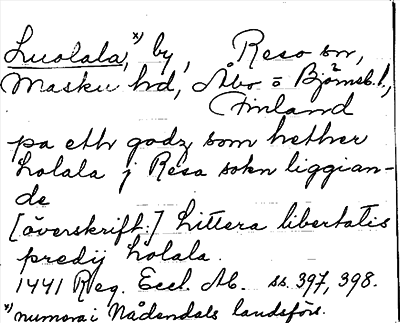 Luolala,*) by, Reso sn,
Masku hd, Åbo o Björneb. l.,
Finland
pa eth godz som hether
Lolala j Resa sokn liggian-
de
[överskrift:] Littera libertatis
predij Lolala.
1441 Reg. Eccl. Ab. ss. 397, 398.
*) numera i Nådendals landsförs.